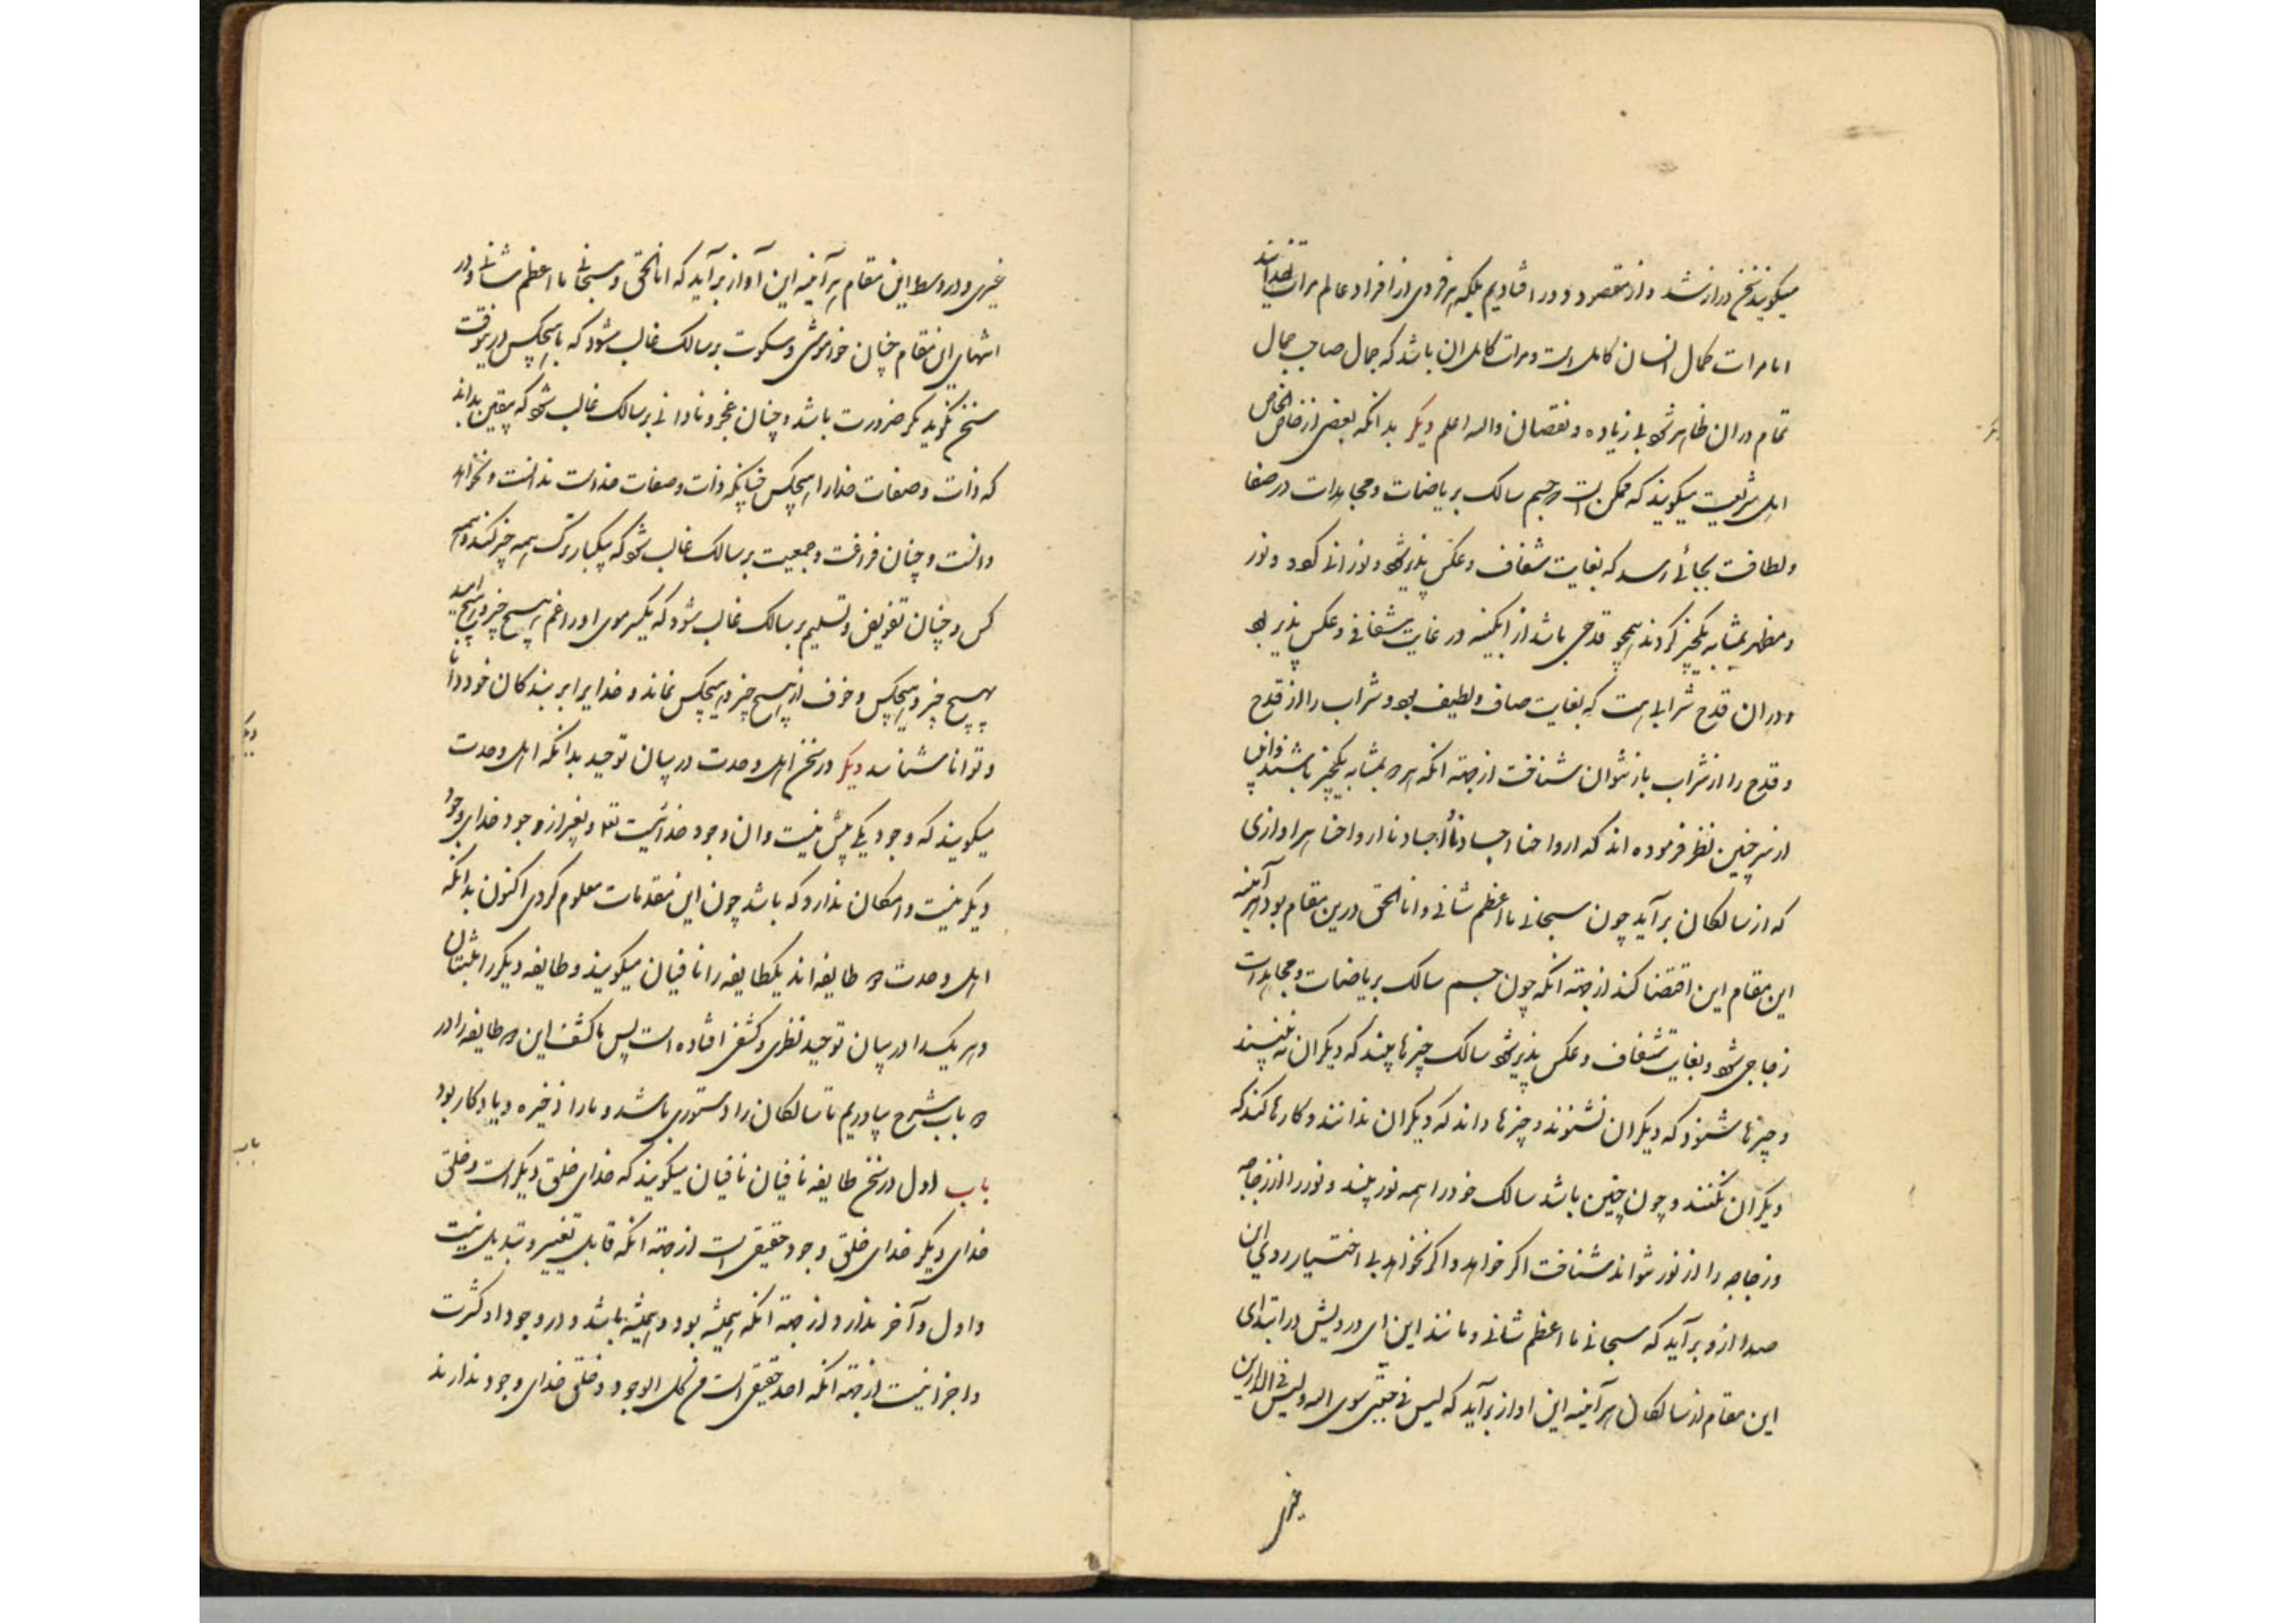 میکویند سخن دراز شد و از مقصود دور افتادیم بلکه هر فردی از افراد عالم مرات خدایند
اما مرات کمال انسان کامل است و مرات کامل ان باشد که جمال صاحب جمال
تمام در ان ظاهر شود بی زیاده و نقصان والله اعلم دیکر بدانکه بعضی از خاص الخاص
اهل شریعت میکویند که ممکن است که جسم سالک بریاضات و مجاهدات در صفا
و لطافت بجائی رسد که بغایت شفاف و عکس پذیر شود و نورانی کردد و نور
و مظهر بمثابه یکچیز کردند همچو قدحی باشد از ابکینه در غایت شفافی و عکس پذیر بود
و در ان قدح شرابی است که بغایت صاف و لطیف بود و شراب را از قدح
و قدح را از شراب باز نتوان شناخت از جهة انکه هر دو بمثابه یکچیز باشند
از سر چنین نظر فرموده اند که ارواحنا اجسادنا اجسادنا ارواحنا هر اوازی
که از سالکان برآید چون سبحانی ما اعظم شانی و انا الحق درین مقام بود هر آینه
این مقام این اقتضا کند از جهة انکه چون جسم سالک بریاضات و مجاهدات
زجاجی شود و بغایت شفاف و عکس پذیر شود سالک چیزها بیند که دیکران نه بینند
و چیزها شنود که دیکران نشنوند و چیزها داند که دیکران ندانند و کارها کند که
دیکران نکنند و چون چنین باشد سالک خود را همه نور بیند و نور را از زجاجه
و زجاجه را از نور نتواند شناخت اکر خواهد و اکر نخواهد بی اختیار روی این
صدا ازو برآید که سبحانی ما اعظم شانی و مانند این ای درویش در ابتدای
این مقام از سالکان هر آینه این اواز برآید که لیس فی جبتی سوی الله و لیس فی الدارین
غیری
غیری و در وسط این مقام هر آینه این آواز برآید که انا الحق و سبحانی ما اعظم شانی و در
انتهای این مقام چنان خواموشی و سکوت بر سالک غالب شود که با هیچکس در هیچ وقت
سخن نکوید مکر ضرورت باشد و چنان عجز و نادانی بر سالک غالب شود که بیقین بداند
که ذات و صفات خدا را هیچکس چنانکه ذات و صفات خداست ندانست و نخواهد
دانست و چنان فراغت و جمعیت بر سالک غالب شود که بیکبار ترک همه چیز کند و همه
کس و چنان تفویض و تسلیم بر سالک غالب شود که یکسر موی او را غم هیچ چیز و امید
بهیچ چیز و هیچکس و خوف از هیچ چیز و هیچکس نماند و خدایرا بر بندکان خود دانا
و توانا شناسد دیکر در سخن اهل وحدت در بیان توحید بدانکه اهل وحدت
میکویند که وجود یکی بیش نیست و ان وجود خدائیست تعا و بغیر از وجود خدای وجود
دیکر نیست و امکان ندارد که باشد چون این مقدمات معلوم کردی اکنون بدانکه
اهل وحدت دو طایفه اند یکطایفه را نافیان میکویند و طایفه دیکر را مثبتان
و هر یک را در بیان توحید نظری و کشفی افتاده است پس ما کشف این دو طایفه را در
دو باب شرح بیاوریم تا سالکان را دستوری باشد و ما را ذخیره و یادکار بود
باب اول در سخن طایفه نافیان نافیان میکویند که خدای خلق دیکر است و خلق
خدای دیکر خدای خلق وجود حقیقی است از جهة انکه قابل تغییر و تبدیل نیست
و اول و آخر ندارد از جهة انکه همیشه بود و همیشه باشد و در وجود او کثرت
و اجزا نیست از جهة انکه احد حقیقی است من کل الوجوه و خلق خدای وجود ندارند
دیکر
باب